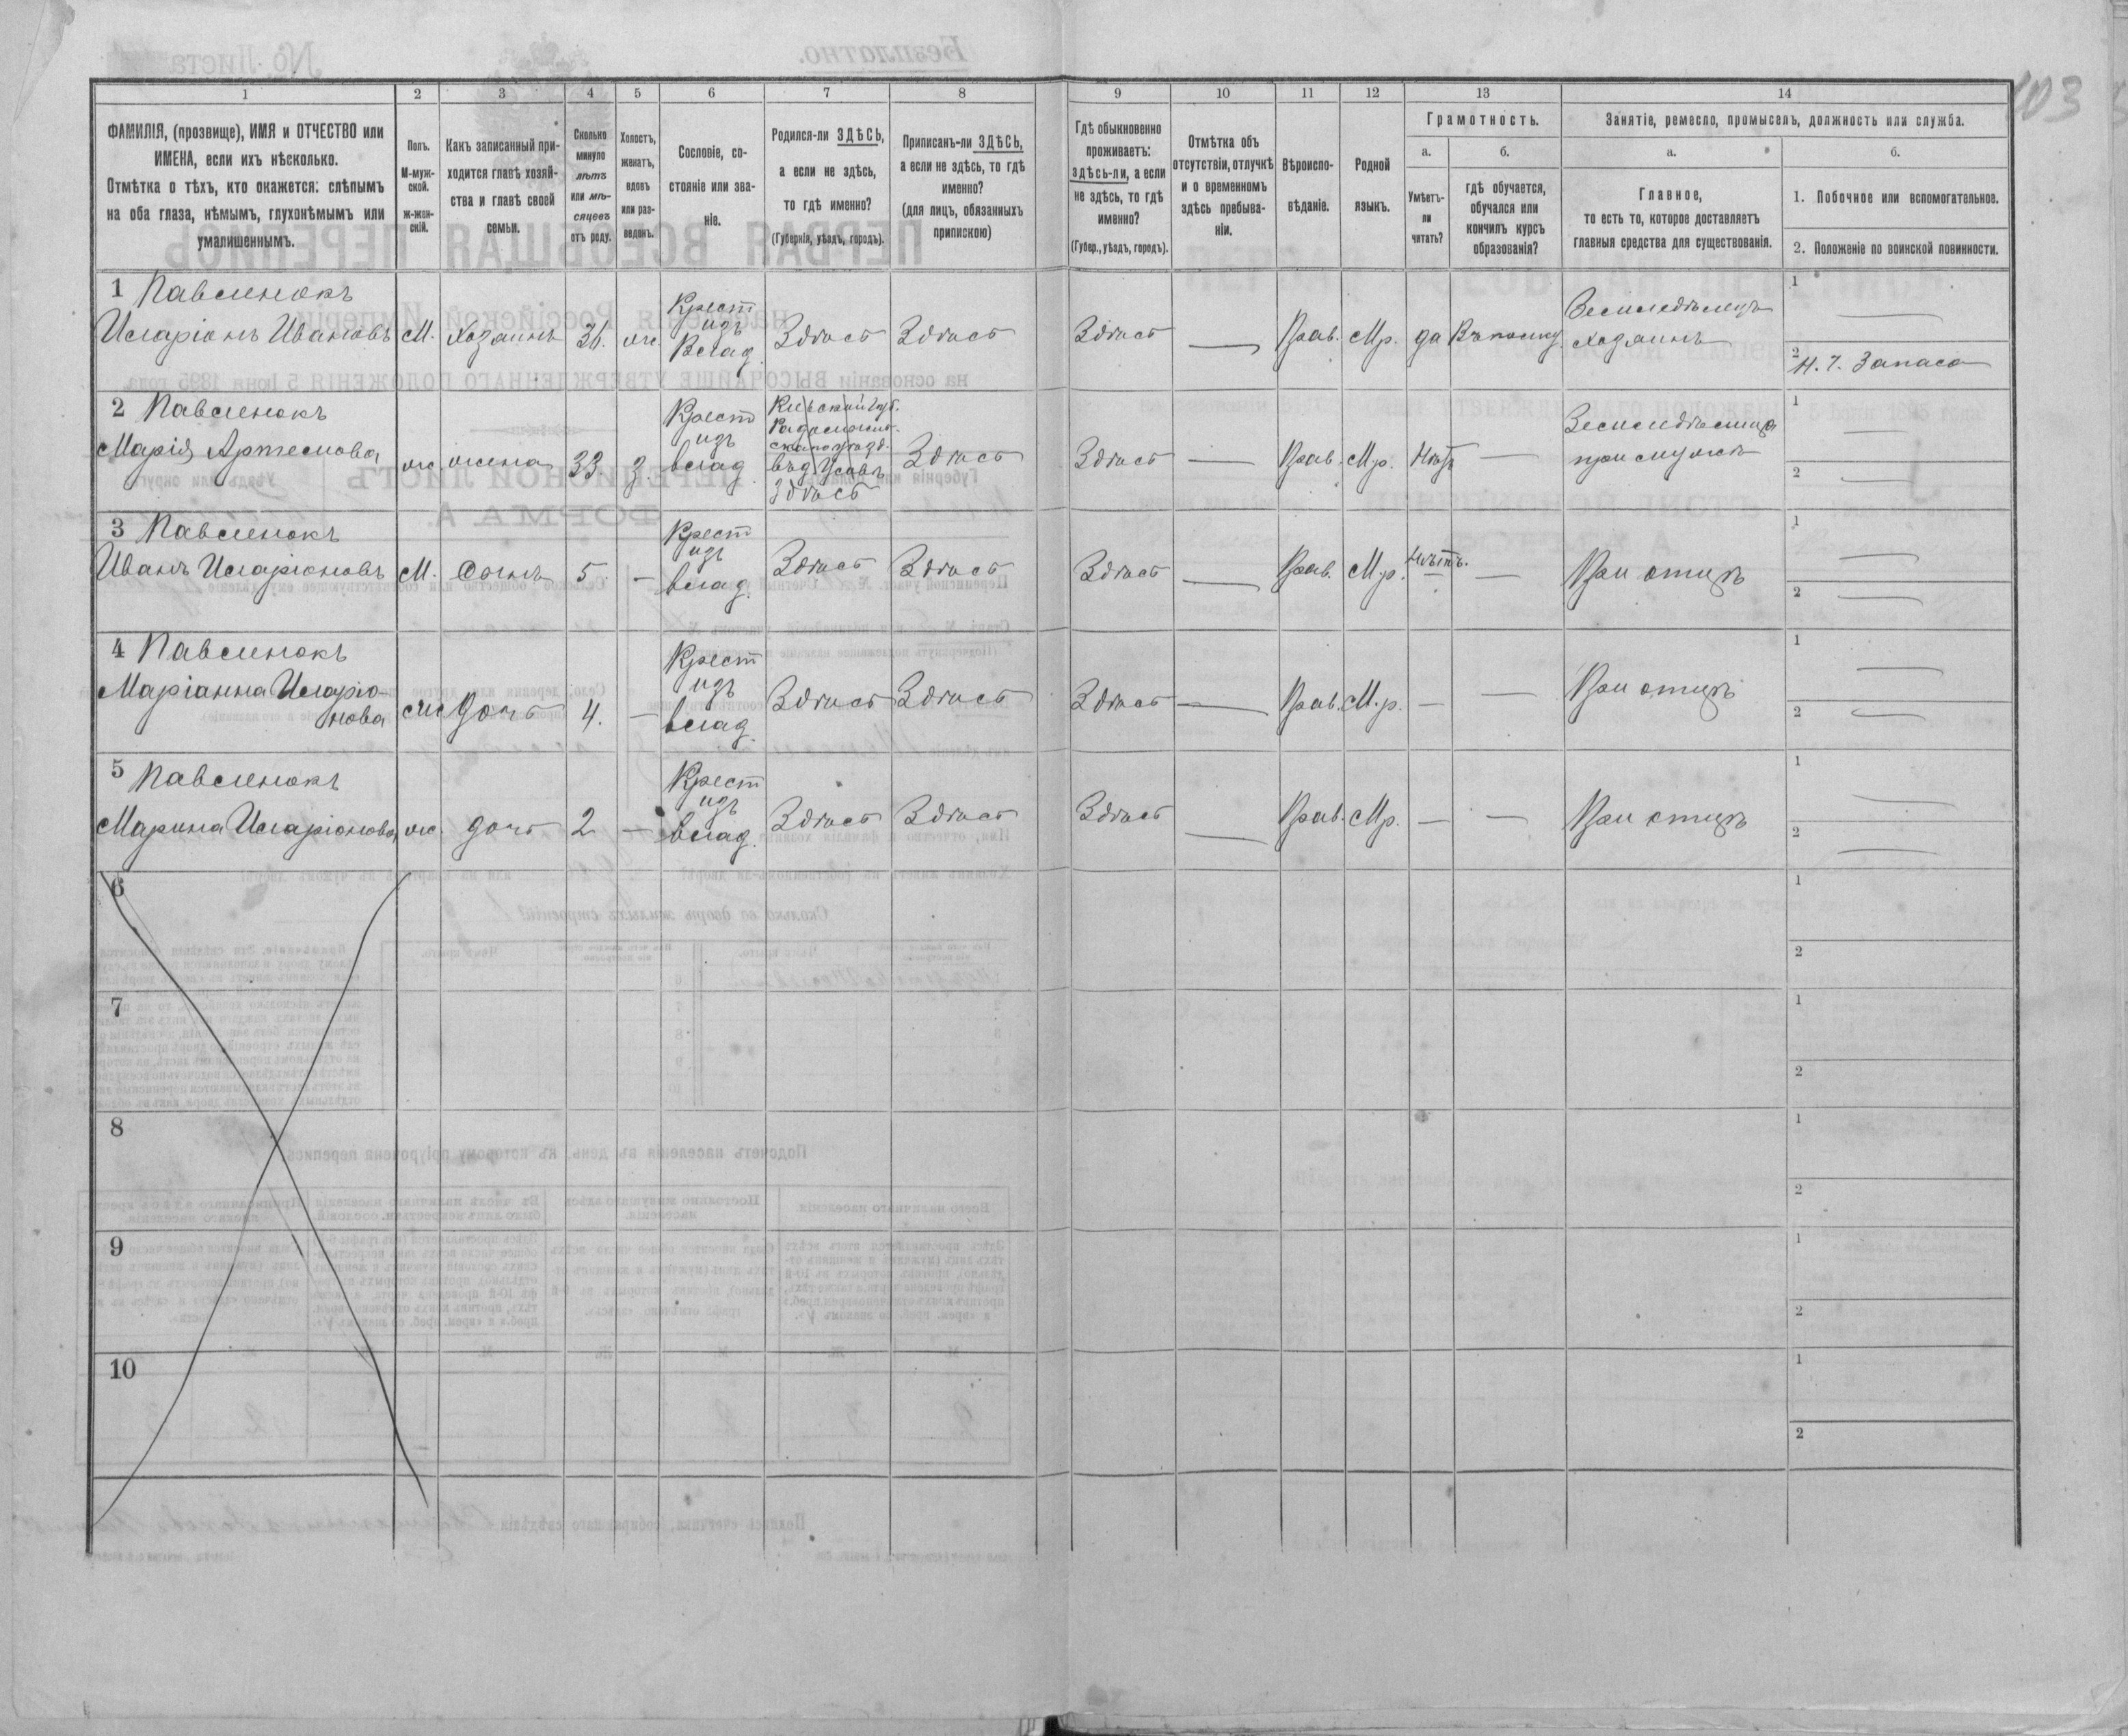 103
1 2 3 4 5 6 7 8 9 10 11 12 13 14
ФАМИЛІЯ, (прозвище), ИМЯ и ОТЧЕСТВО или
ИМЕНА, если ихъ нѣсколько.
Отмѣтка о тѣхъ, кто окажется: слѣпымъ
на оба глаза, нѣмымъ, глухонѣмымъ или
умалишеннымъ.
Полъ.
М-муж-
ской.
ж-жен-
скій.
Какъ записанный при-
ходится главѣ хозяй-
ства и главѣ своей
семьи.
Сколько
минуло
лѣтъ
или мѣ-
сяцевъ
отъ роду.
Холостъ,
женатъ,
вдовъ
или раз-
веденъ.
Сословіе, со-
стояніе или зва-
ніе.
Родился-ли ЗДѢСЬ,
а если не здѣсь,
то гдѣ именно?
(Губернія, уѣздъ, городъ).
Приписанъ-ли ЗДѢСЬ,
а если не здѣсь, то гдѣ
именно?
(для лицъ, обязанныхъ
припискою)
Гдѣ обыкновенно
проживаетъ:
здѣсь-ли, а если
не здѣсь, то гдѣ
именно?
(Губер., уѣздъ, городъ).
Отмѣтка объ
отсутствіи, отлучкѣ
и о временномъ
здѣсь пребыва-
ніи.
Вѣроиспо-
вѣданіе.
Родной
языкъ.
Грамотность.
а.
Умѣетъ-
ли
читать?
б.
гдѣ обучается,
обучался или
кончилъ курсъ
образованія?
Занятіе, ремесло, промыселъ, должность или служба.
а.
Главное,
то есть то, которое доставляетъ
главныя средства для существованія.
б.
1. Побочное или вспомогательное.
2. Положеніе по воинской повинности.
1 Павленокъ
Иларіонъ Ивановъ
М. Хозяинъ 36. ж.
Крест
изъ
Влад.
Здѣсь Здѣсь Здѣсь — Прав. Мр. да Въ полку
Земледѣлецъ
хозяинъ
1 —
2 Н. Ч. Запаса
2 Павленокъ
Марія Артемова
ж жена 33. З.
Крест
изъ
влад
Здѣсь
Здѣсь Здѣсь — Прав. Мр. Нѣтъ —
Земледѣлица
при мужѣ
1 —
2 —
3 Павленокъ
Иванъ Иларіоновъ
М. Сынъ 5. —
Крест
изъ
влад.
Здѣсь Здѣсь Здѣсь — Прав. Мр. Нѣтъ. —
При отцѣ
1 —
2 —
4 Павленокъ
Маріанна Иларіо-
нова
ж дочь 4. —
Крест
изъ
влад.
Здѣсь Здѣсь Здѣсь — Прав. М.р. — —
При отцѣ
1 —
2 —
5 Павленокъ
Марина Иларіонова
ж. дочь 2 —
Крест
изъ
влад.
Здѣсь Здѣсь Здѣсь — Прав. Мр. — —
При отцѣ
1 —
2 —
6
1
2
7
1
2
8
1
2
9
1
2
10
1
2